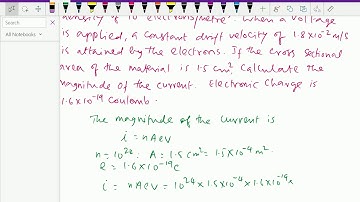 Search
All Notebooks
density of 10 electrons/metre³. When a voltage
is applied, a constant drift velocity of 1.8×10⁻² m/s
is attained by the electrons. If the cross sectional
area of the material is 1.5 cm², calculate the
magnitude of the current. Electronic Charge is
1.6×10⁻¹⁹ Coulomb.
The magnitude of the current is
i = nAev
n = 10²⁴. A = 1.5 cm² = 1.5×10⁻⁴ m².
e = 1.6×10⁻¹⁹ C
i = nAev = 10²⁴ × 1.5×10⁻⁴ × 1.6×10⁻¹⁹ ×